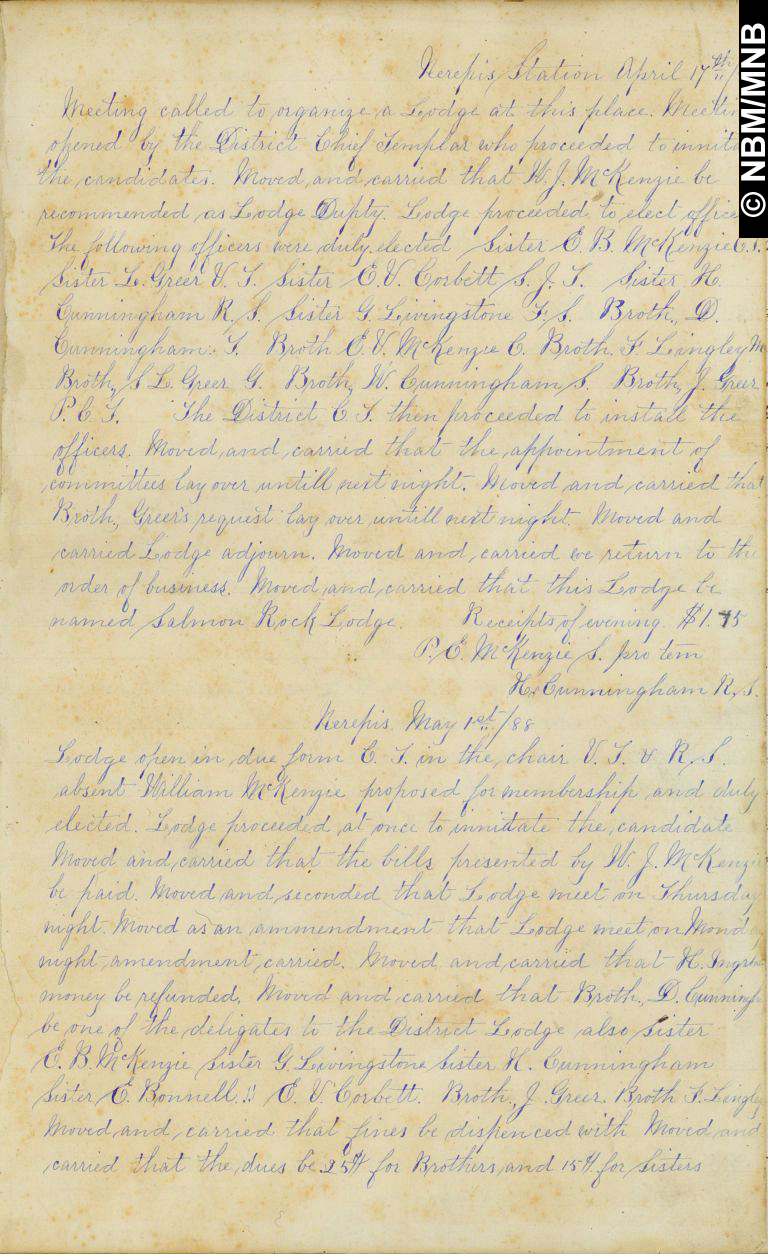 Nerepis Station April 17th /
Meeting called to organize a Lodge at this place. Meetin
opened by the District Chief Templar who proceeded to innit
the candidates. Moved and carried that W. J. McKenzie be
recommended as Lodge Dupty. Lodge proceeded to elect office
The following officers were duly elected Sister E. B. McKenzie C. T.
Sister L. Greer V. T. Sister E. V. Corbett S. J. T. Sister H.
Cunningham R. S. Sister G. Livingstone F. S. Broth., D.
Cunningham. T. Broth E. V. McKenzie C. Broth. F Lingley M
Broth, S L. Greer G. Broth, W. Cunningham S. Broth, J. Greer
P. C. T. The District C. T. then proceeded to install the
officers. Moved and carried that the appointment of
committees lay over untill next night. Moved and carried that
Broth., Greer's request lay over untill next night. Moved and
carried Lodge adjourn. Moved and carried we return to the
order of business. Moved and carried that this Lodge be
named Salmon Rock Lodge. Receipts of evening $1.75
P. E. McKenzie S. pro tem
H. Cunningham R. S.
Nerepis. May 1st /88
Lodge open in due form C. T. in the chair V. T. & R. S.
absent William McKenzie proposed for membership and duly
elected. Lodge proceeded at once to innitiate the candidate
Moved and carried that the bills presented by W. J. McKenzie
be paid. Moved and seconded that Lodge meet on Thursday
night. Moved as an ammendment that Lodge meet on Mond
night amendment carried. Moved and carried that H. Ingra
money be refunded. Moved and carried that Broth., D. Cunningh
be one of the deligates to the District Lodge also Sister
E. B. McKenzie Sister G. Livingstone Sister H. Cunningham
Sister E. Bonnell. " E. V. Corbett. Broth., J. Greer. Broth F. Lingley
Moved and carried that fines be dispenced with Moved and
carried that the dues be 25¢ for Brothers and 15¢ for Sisters
© NBM/MNB